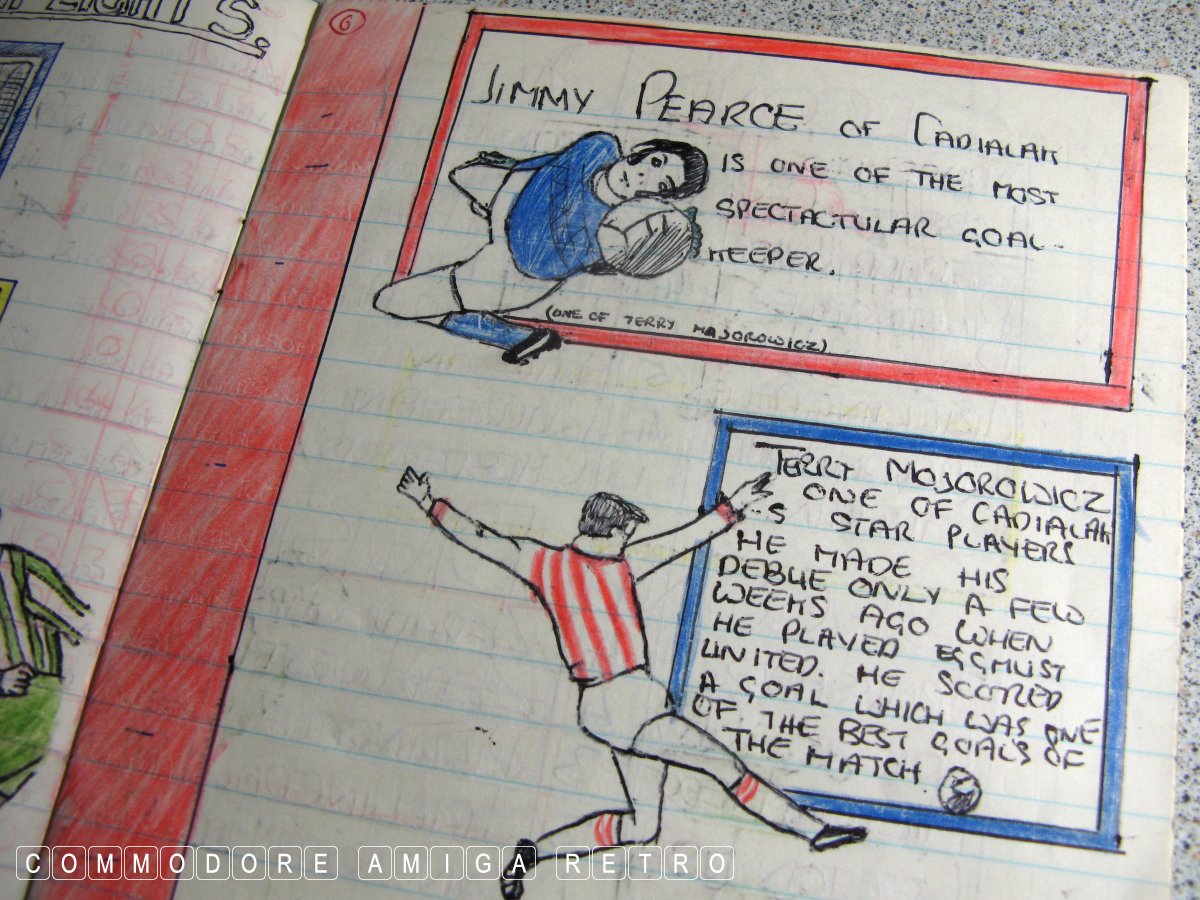 6
JIMMY PEARCE OF CADIALAK
IS ONE OF THE MOST
SPECTACTULAR GOAL-
KEEPER.
(ONE OF TERRY MAJOROWICZ)
TERRY MOJOROWICZ
ONE OF CADIALAK
S STAR PLAYERS
HE MADE HIS
DEBUE ONLY A FEW
WEEKS AGO WHEN
HE PLAYED EGGMUST
UNITED. HE SCORED
A GOAL WHICH WAS ONE
OF THE BEST GOALS OF
THE MATCH.
COMMODORE AMIGA RETRO